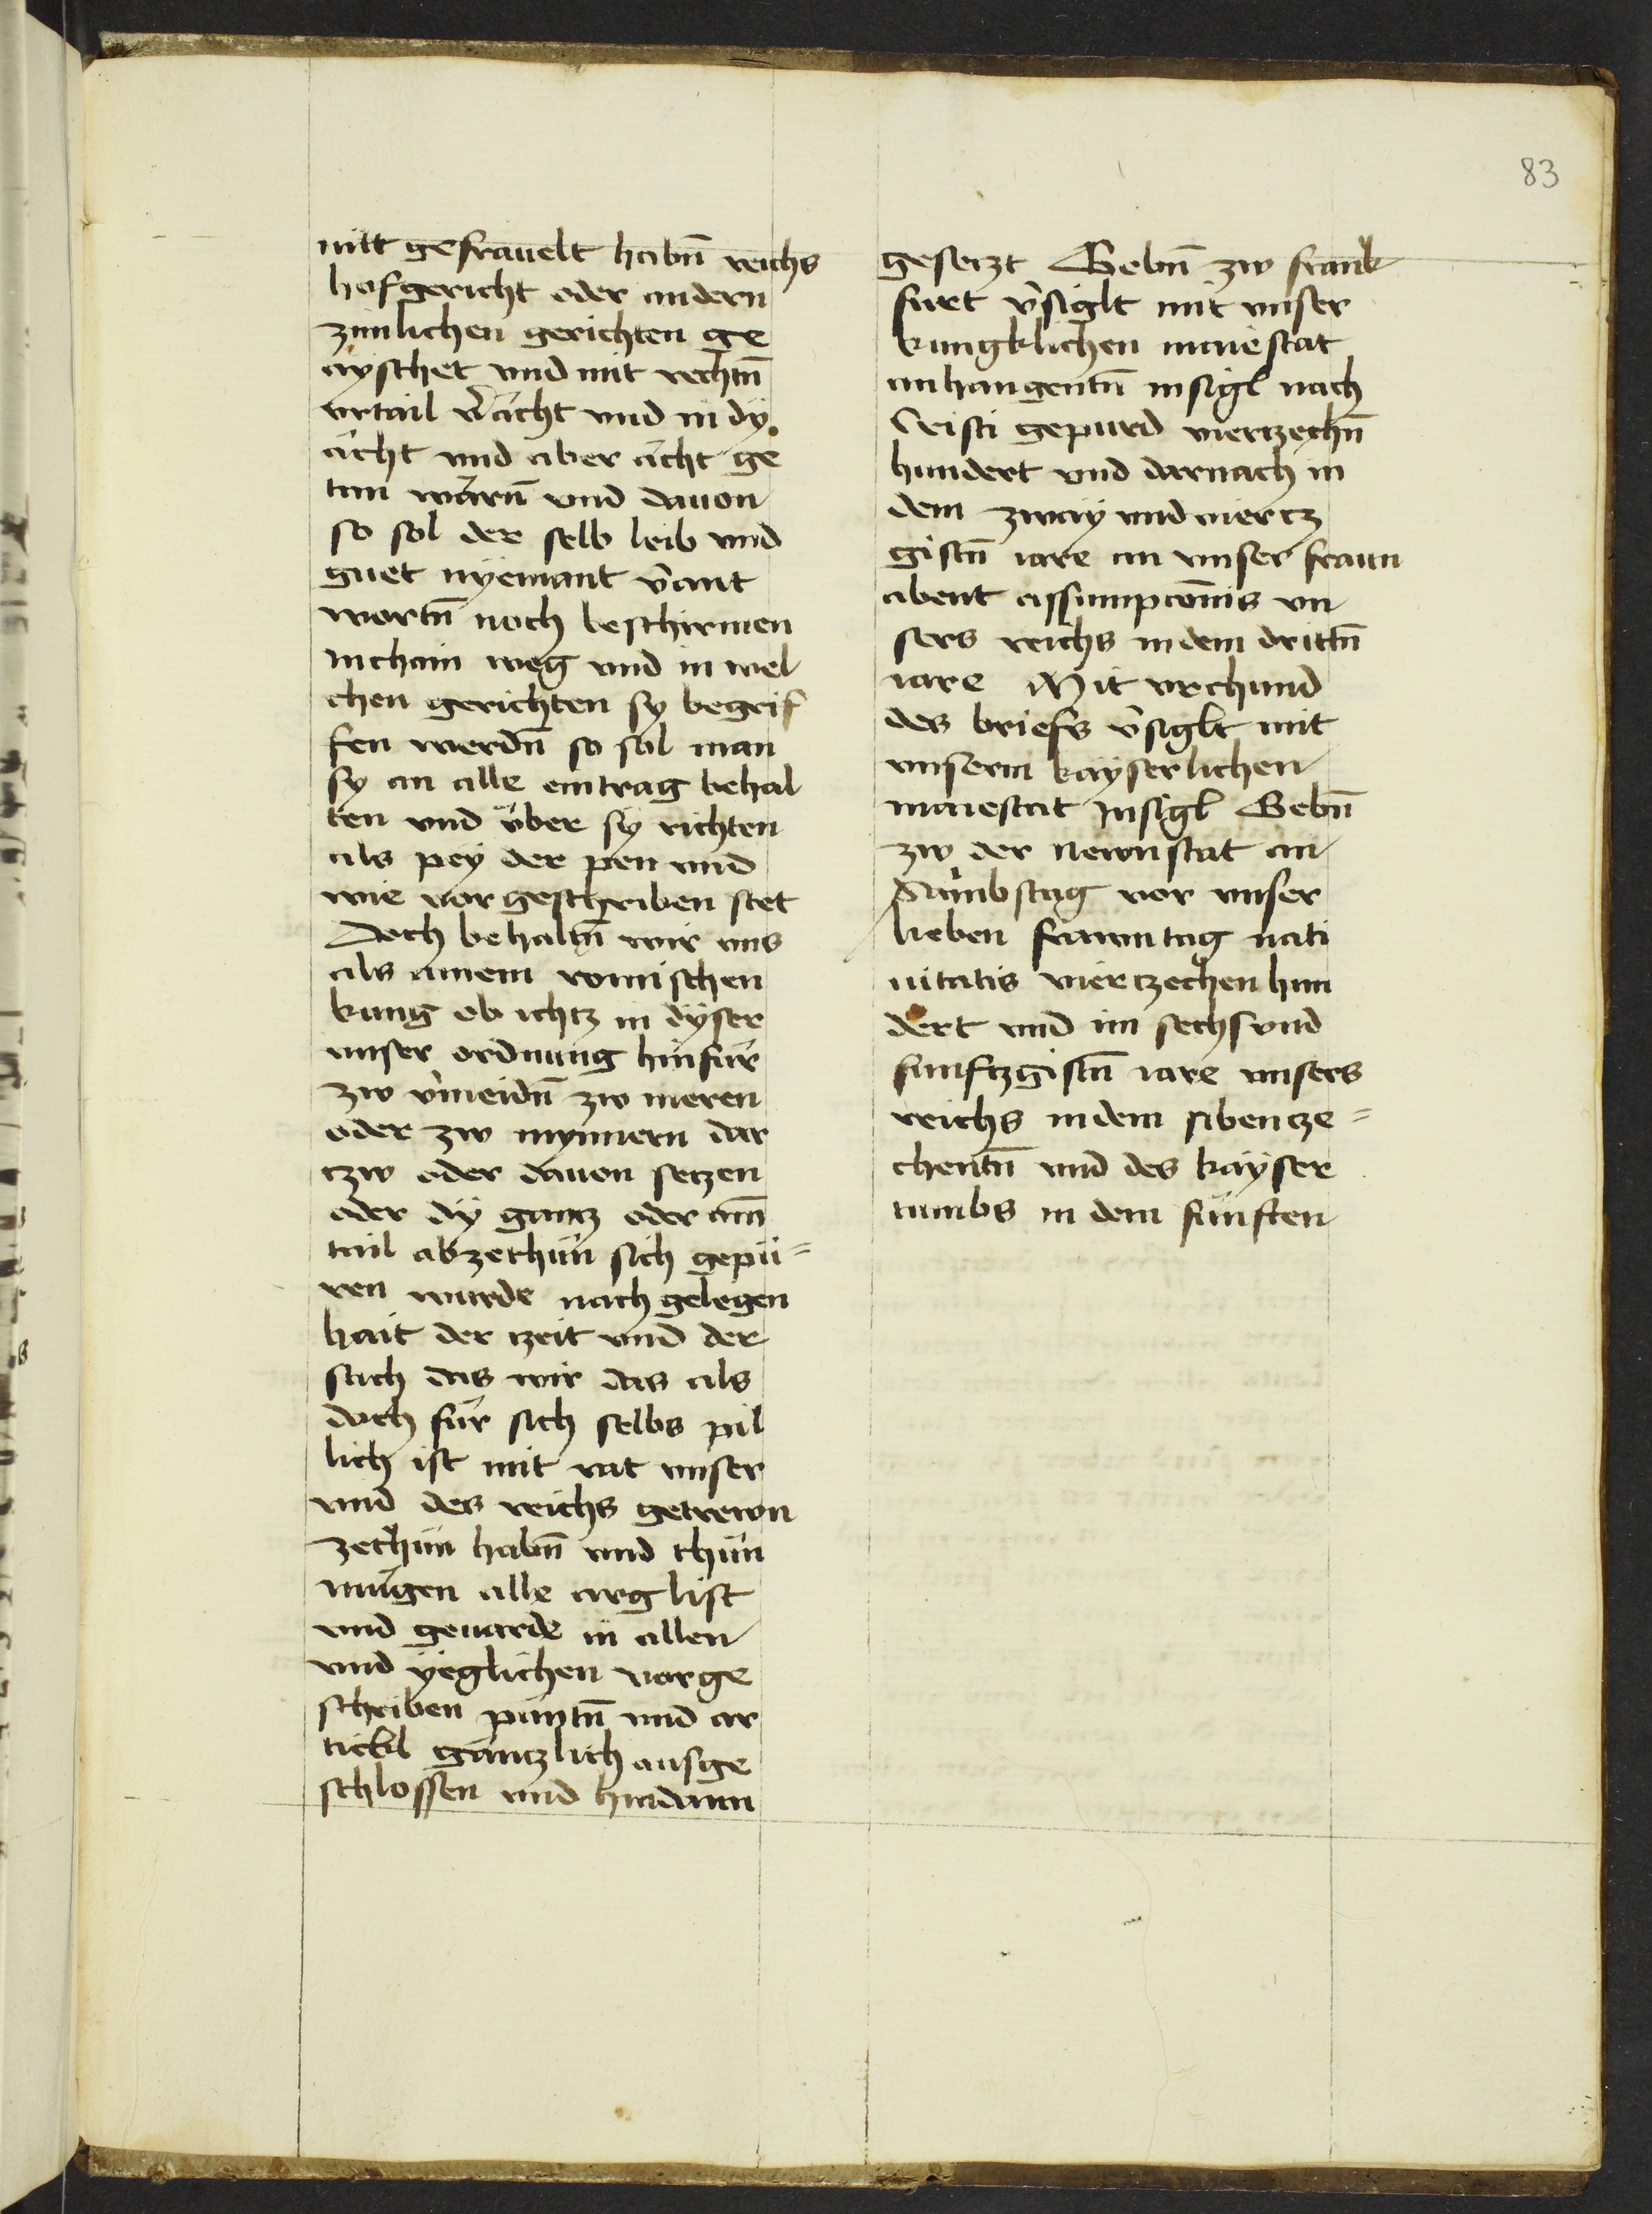 83
mit gefräuelt habn̄ reichs
hofgericht oder andern
zimlichen gerichten ge
äyschet vnd mit rechtn̄
vrtail v̄ächt vnd in dÿ
ächt vnd aber ächt ge
tan wärn̄ vnd dauon
so sol der selb leib vnd
guet nÿemant v̄ant
wortn̄ noch beschirmen
in chain weg vnd in wel
chen gerichten sy begrif
fen werdn̄ so sol man
sy an alle eintrag behal
ten vnd über sÿ richten
als peÿ der pen vnd
wie vorgeschriben stet
Doch behaltn̄ wir vns
als ainem romischen
kung ob ichtz in dÿser
vnser ordnung hinfür
zw v̄meidn̄ zw meren
oder zw mynnern dar
tzw oder dauon setzen
oder dÿ gantz oder ain̄
tail abzethün sich gepü=
ren wurde nach gelegen
hait der tzeit vnd der
sach das wir das als
doch für sich selbs pil
lich ist mit rat vnser
vnd des reichs getrewn
zethün habn̄ vnd thün
mügen alle arglist
vnd geuarde in allen
vnd ÿeglichen vorge
schriben püntn̄ vnd ar
tickl gäntzlich ausge
schlossen vnd hindann
gesetzt Gebn̄ zw frank
furt v̄siglt mit vnser
kungklichen maiestat
anhangentn̄ insigl nach
Cristi gepurd viertzechn̄
hundert vnd darnach in
dem zwaÿ vnd viertz
gistn̄ iare an vnser fraun
abent assumpcōnis vn
sers reichs in dem drittn̄
iare Mit vrchund
des briefs v̄siglt mit
vnserm kaÿserlichen
maiestat Insigl Gebn̄
zw der Newnstat an
Sambstag vor vnser
lieben frawntag nati
uitatis viertzechen hun
dert vnd im sechs vnd
funftzgistn̄ iare vnsers
reichs in dem sibentze=
chentn̄ vnd des kaÿser
tumbs in dem fünften